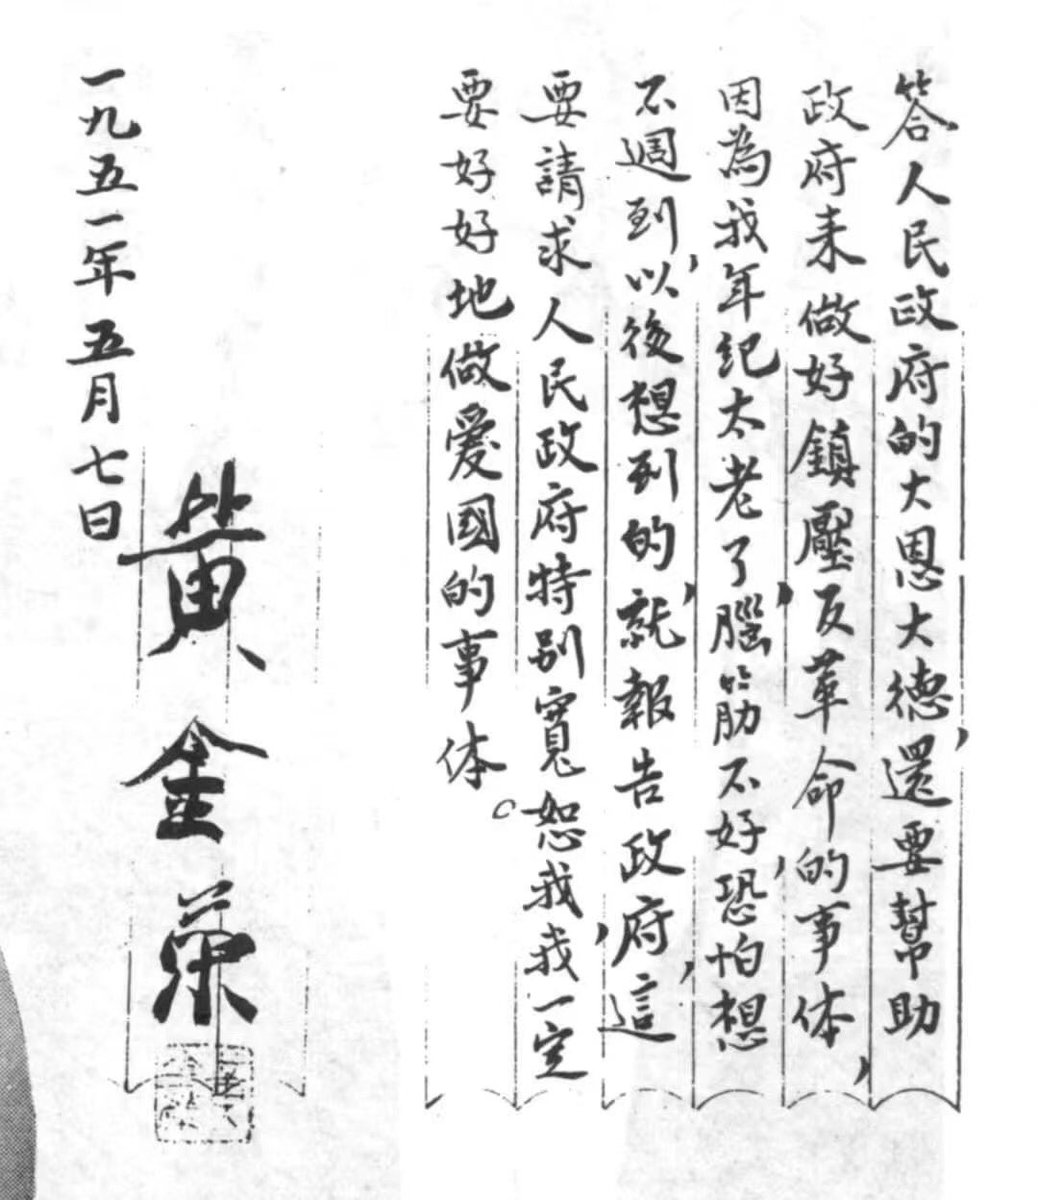 答人民政府的大恩大德，還要幫助
政府来做好鎮壓反革命的事体，
因為我年紀太老了，腦筋不好，恐怕想
不週到，以後想到的，就報告政府，這
要請求人民政府特別寬恕我，我一定
要好好地做愛國的事体。
黄金荣
一九五一年五月七日